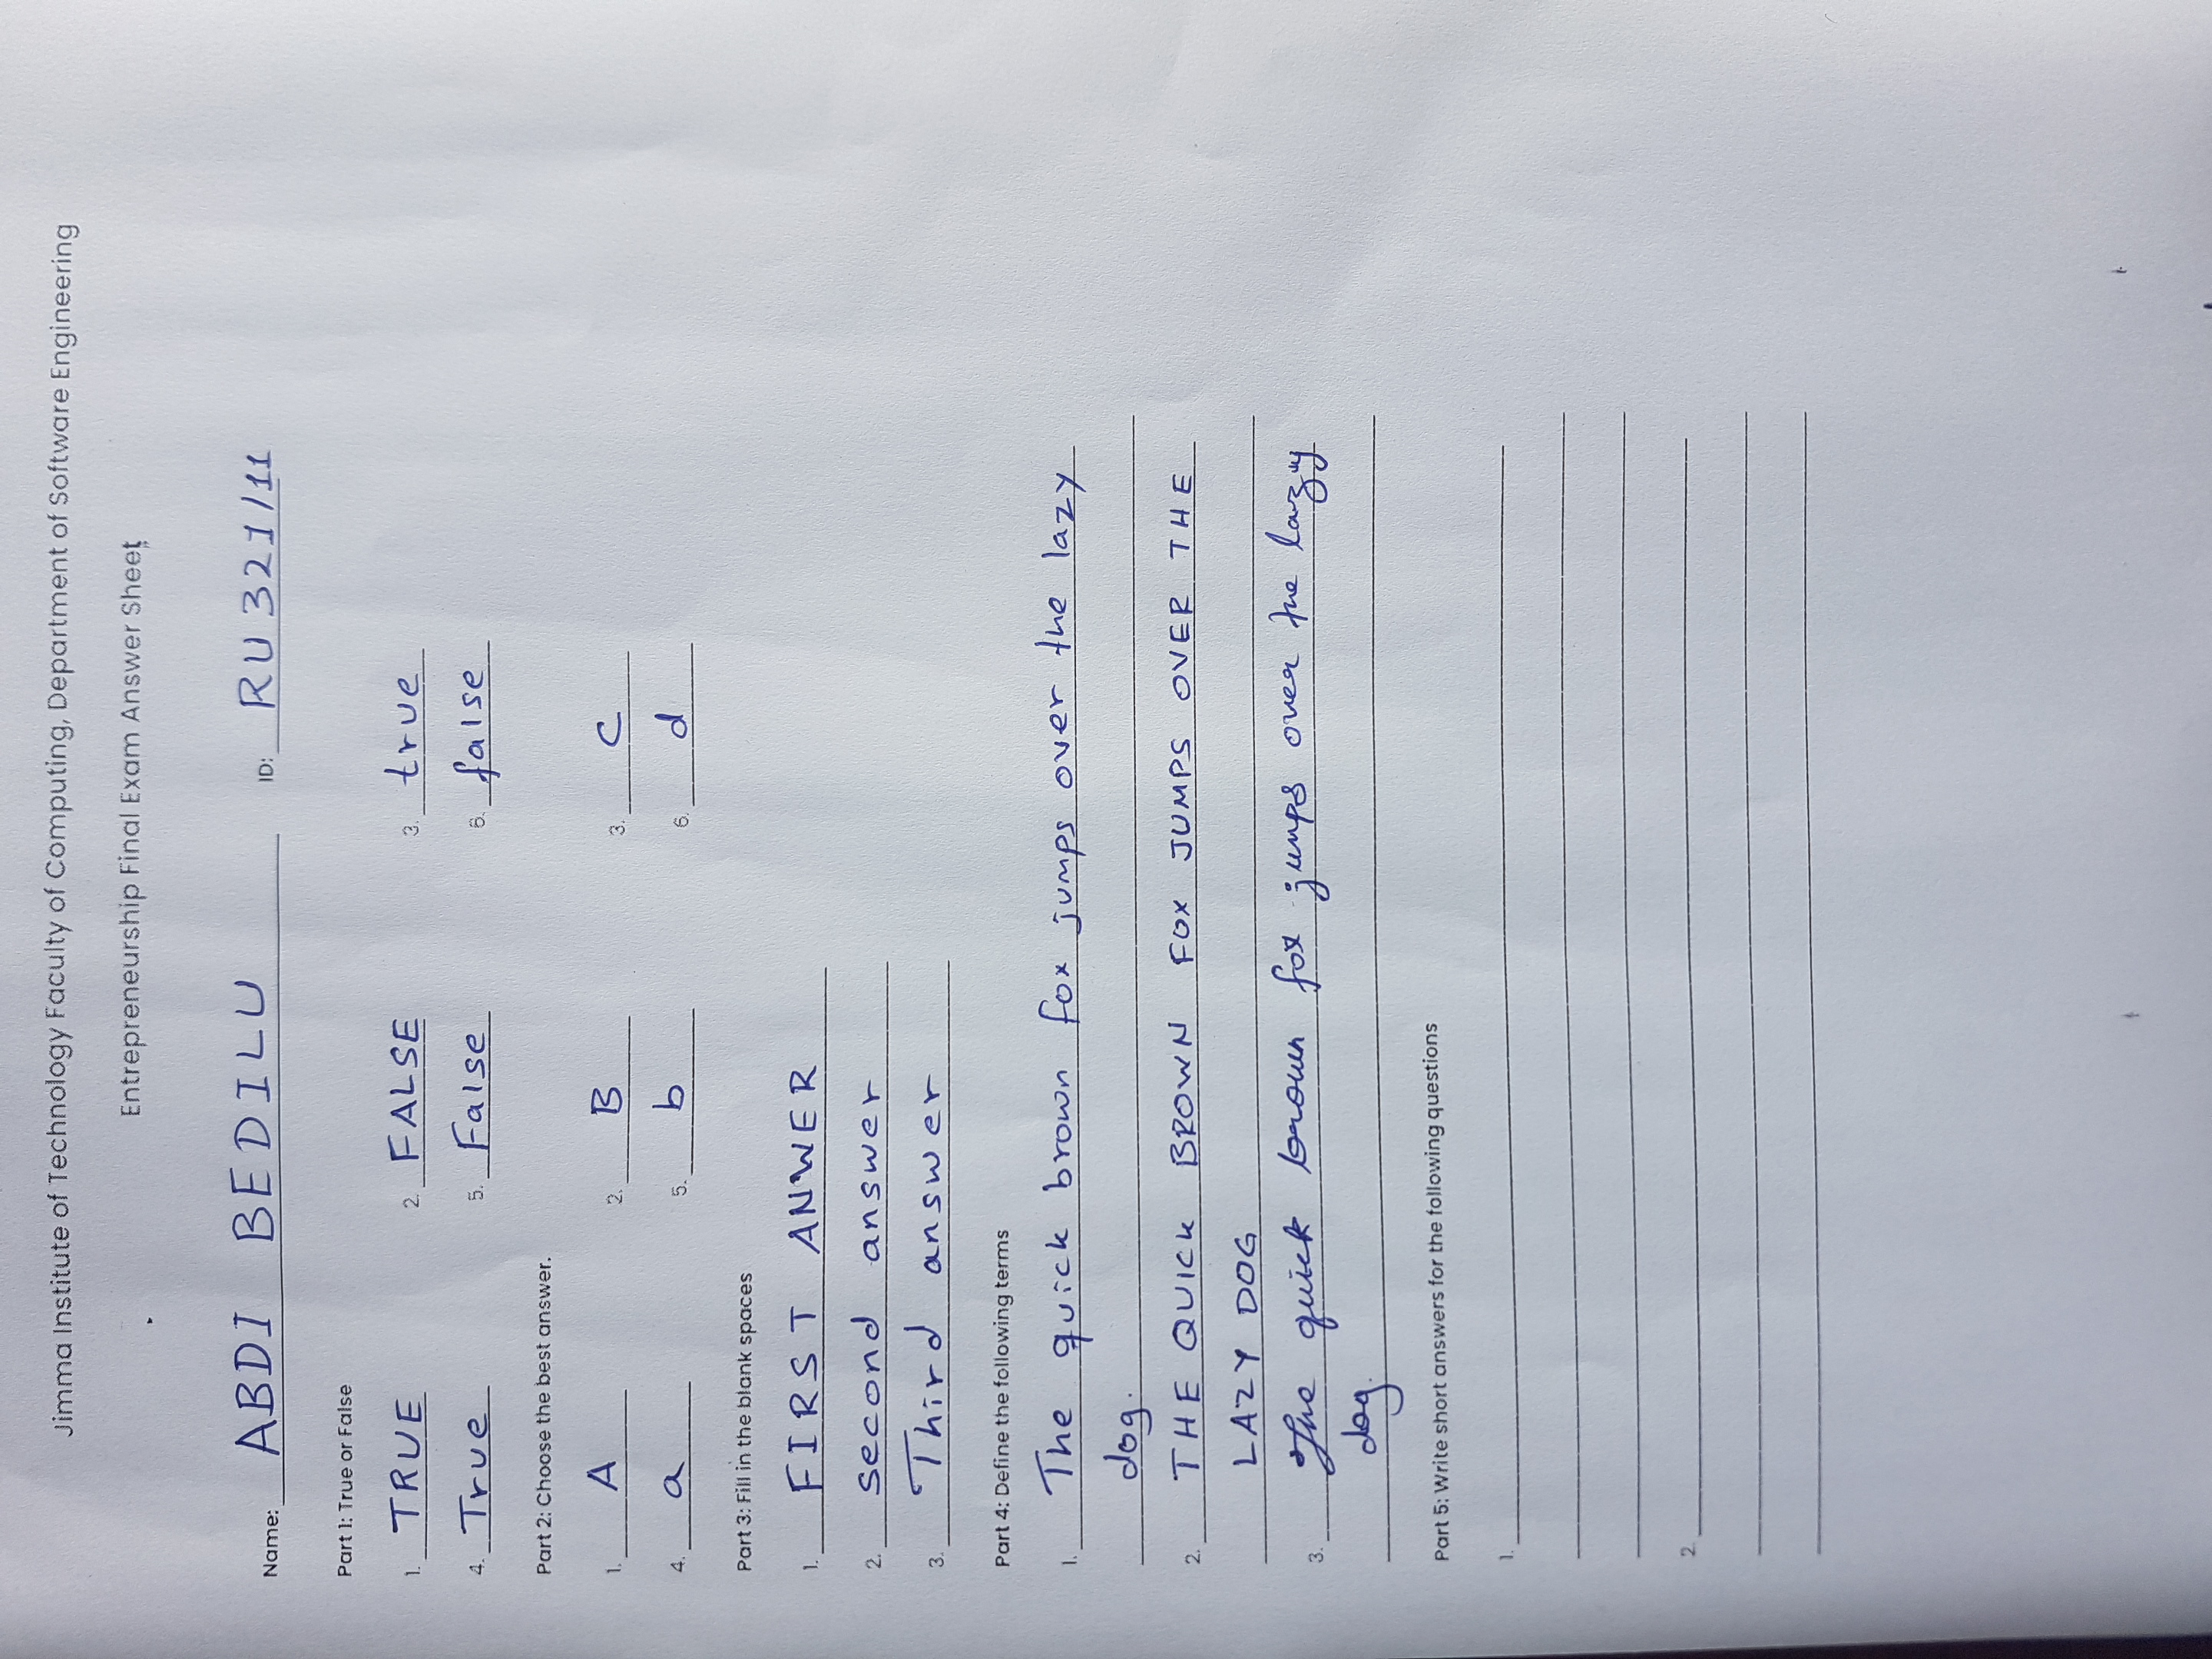 Jimma Institute of Technology Faculty of Computing, Department of Software Engineering
Entrepreneurship Final Exam Answer Sheet
Name: ABDI BEDILU ID: RU 321/11
Part 1: True or False
1. TRUE 2. FALSE 3. true
4. True 5. False 6. false
Part 2: Choose the best answer.
1. A 2. B 3. C
4. a 5. b 6. d
Part 3: Fill in the blank spaces
1. FIRST ANWER
2. second answer
3. Third answer
Part 4: Define the following terms
1. The quick brown fox jumps over the lazy
dog.
2. THE QUICK BROWN FOX JUMPS OVER THE
LAZY DOG
3. The quick brown fox jumps over the lazy
dog.
Part 5: Write short answers for the following questions
1.
2.